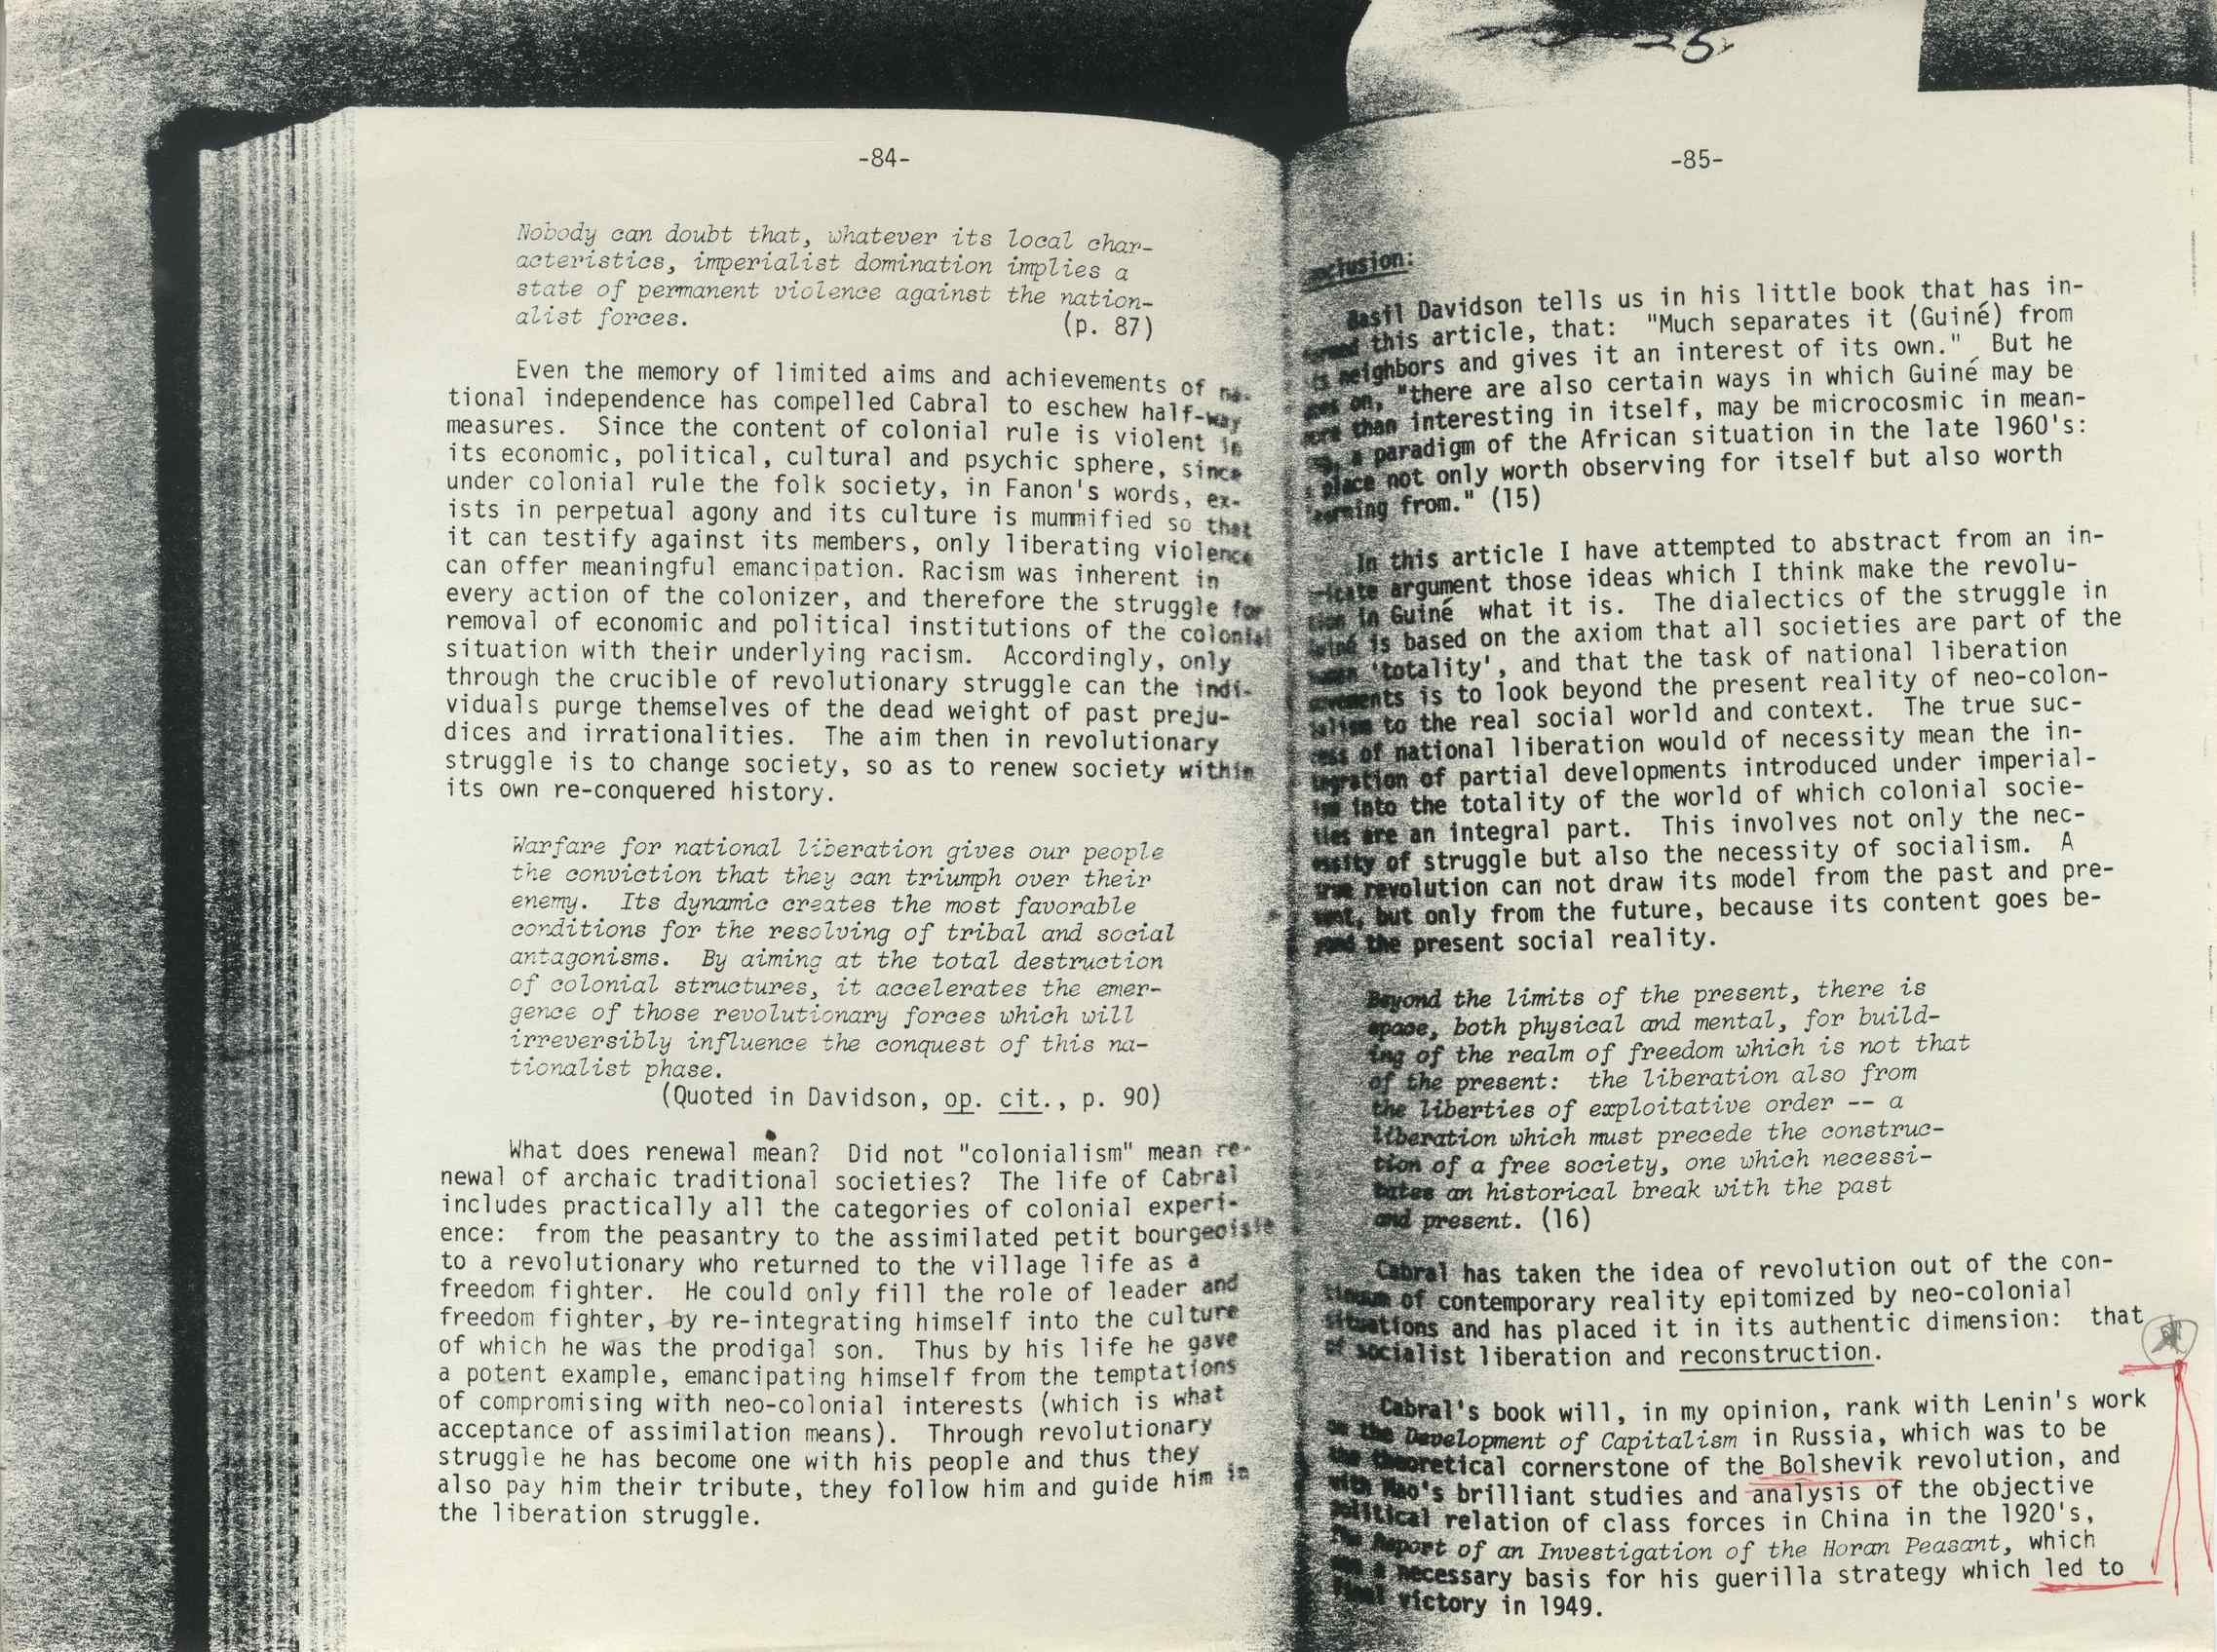 25
-84-
Nobody can doubt that, whatever its local char-
acteristics, imperialist domination implies a
state of permanent violence against the nation-
alist forces. (p. 87)
Even the memory of limited aims and achievements of na-
tional independence has compelled Cabral to eschew half-way
measures. Since the content of colonial rule is violent in
its economic, political, cultural and psychic sphere, since
under colonial rule the folk society, in Fanon's words, ex-
ists in perpetual agony and its culture is mummified so that
it can testify against its members, only liberating violence
can offer meaningful emancipation. Racism was inherent in
every action of the colonizer, and therefore the struggle for
removal of economic and political institutions of the colonial
situation with their underlying racism. Accordingly, only
through the crucible of revolutionary struggle can the indi-
viduals purge themselves of the dead weight of past preju-
dices and irrationalities. The aim then in revolutionary
struggle is to change society, so as to renew society within
its own re-conquered history.
Warfare for national liberation gives our people
the conviction that they can triumph over their
enemy. Its dynamic creates the most favorable
conditions for the resolving of tribal and social
antagonisms. By aiming at the total destruction
of colonial structures, it accelerates the emer-
gence of those revolutionary forces which will
irreversibly influence the conquest of this na-
tionalist phase.
(Quoted in Davidson, op. cit., p. 90)
What does renewal mean? Did not "colonialism" mean re-
newal of archaic traditional societies? The life of Cabral
includes practically all the categories of colonial experi-
ence: from the peasantry to the assimilated petit bourgeoisie
to a revolutionary who returned to the village life as a
freedom fighter. He could only fill the role of leader and
freedom fighter, by re-integrating himself into the culture
of which he was the prodigal son. Thus by his life he gave
a potent example, emancipating himself from the temptations
of compromising with neo-colonial interests (which is what
acceptance of assimilation means). Through revolutionary
struggle he has become one with his people and thus they
also pay him their tribute, they follow him and guide him in
the liberation struggle.
-85-
Conclusion:
Basil Davidson tells us in his little book that has in-
formed this article, that: "Much separates it (Guiné) from
its neighbors and gives it an interest of its own." But he
goes on, "there are also certain ways in which Guiné may be
more than interesting in itself, may be microcosmic in mean-
a paradigm of the African situation in the late 1960's:
a place not only worth observing for itself but also worth
learning from." (15)
In this article I have attempted to abstract from an in-
tricate argument those ideas which I think make the revolu-
tion in Guiné what it is. The dialectics of the struggle in
Guiné is based on the axiom that all societies are part of the
human 'totality', and that the task of national liberation
movements is to look beyond the present reality of neo-colon-
ialism to the real social world and context. The true suc-
cess of national liberation would of necessity mean the in-
tegration of partial developments introduced under imperial-
ism into the totality of the world of which colonial socie-
ties are an integral part. This involves not only the nec-
essity of struggle but also the necessity of socialism. A
true revolution can not draw its model from the past and pre-
sent, but only from the future, because its content goes be-
yond the present social reality.
Beyond the limits of the present, there is
space, both physical and mental, for build-
ing of the realm of freedom which is not that
of the present: the liberation also from
the liberties of exploitative order -- a
liberation which must precede the construc-
tion of a free society, one which necessi-
tates an historical break with the past
and present. (16)
Cabral has taken the idea of revolution out of the con-
tinuum of contemporary reality epitomized by neo-colonial
situations and has placed it in its authentic dimension: that
of socialist liberation and reconstruction.
Cabral's book will, in my opinion, rank with Lenin's work
on the Development of Capitalism in Russia, which was to be
the theoretical cornerstone of the Bolshevik revolution, and
with Mao's brilliant studies and analysis of the objective
political relation of class forces in China in the 1920's,
The Report of an Investigation of the Horan Peasant, which
was a necessary basis for his guerilla strategy which led to
final victory in 1949.